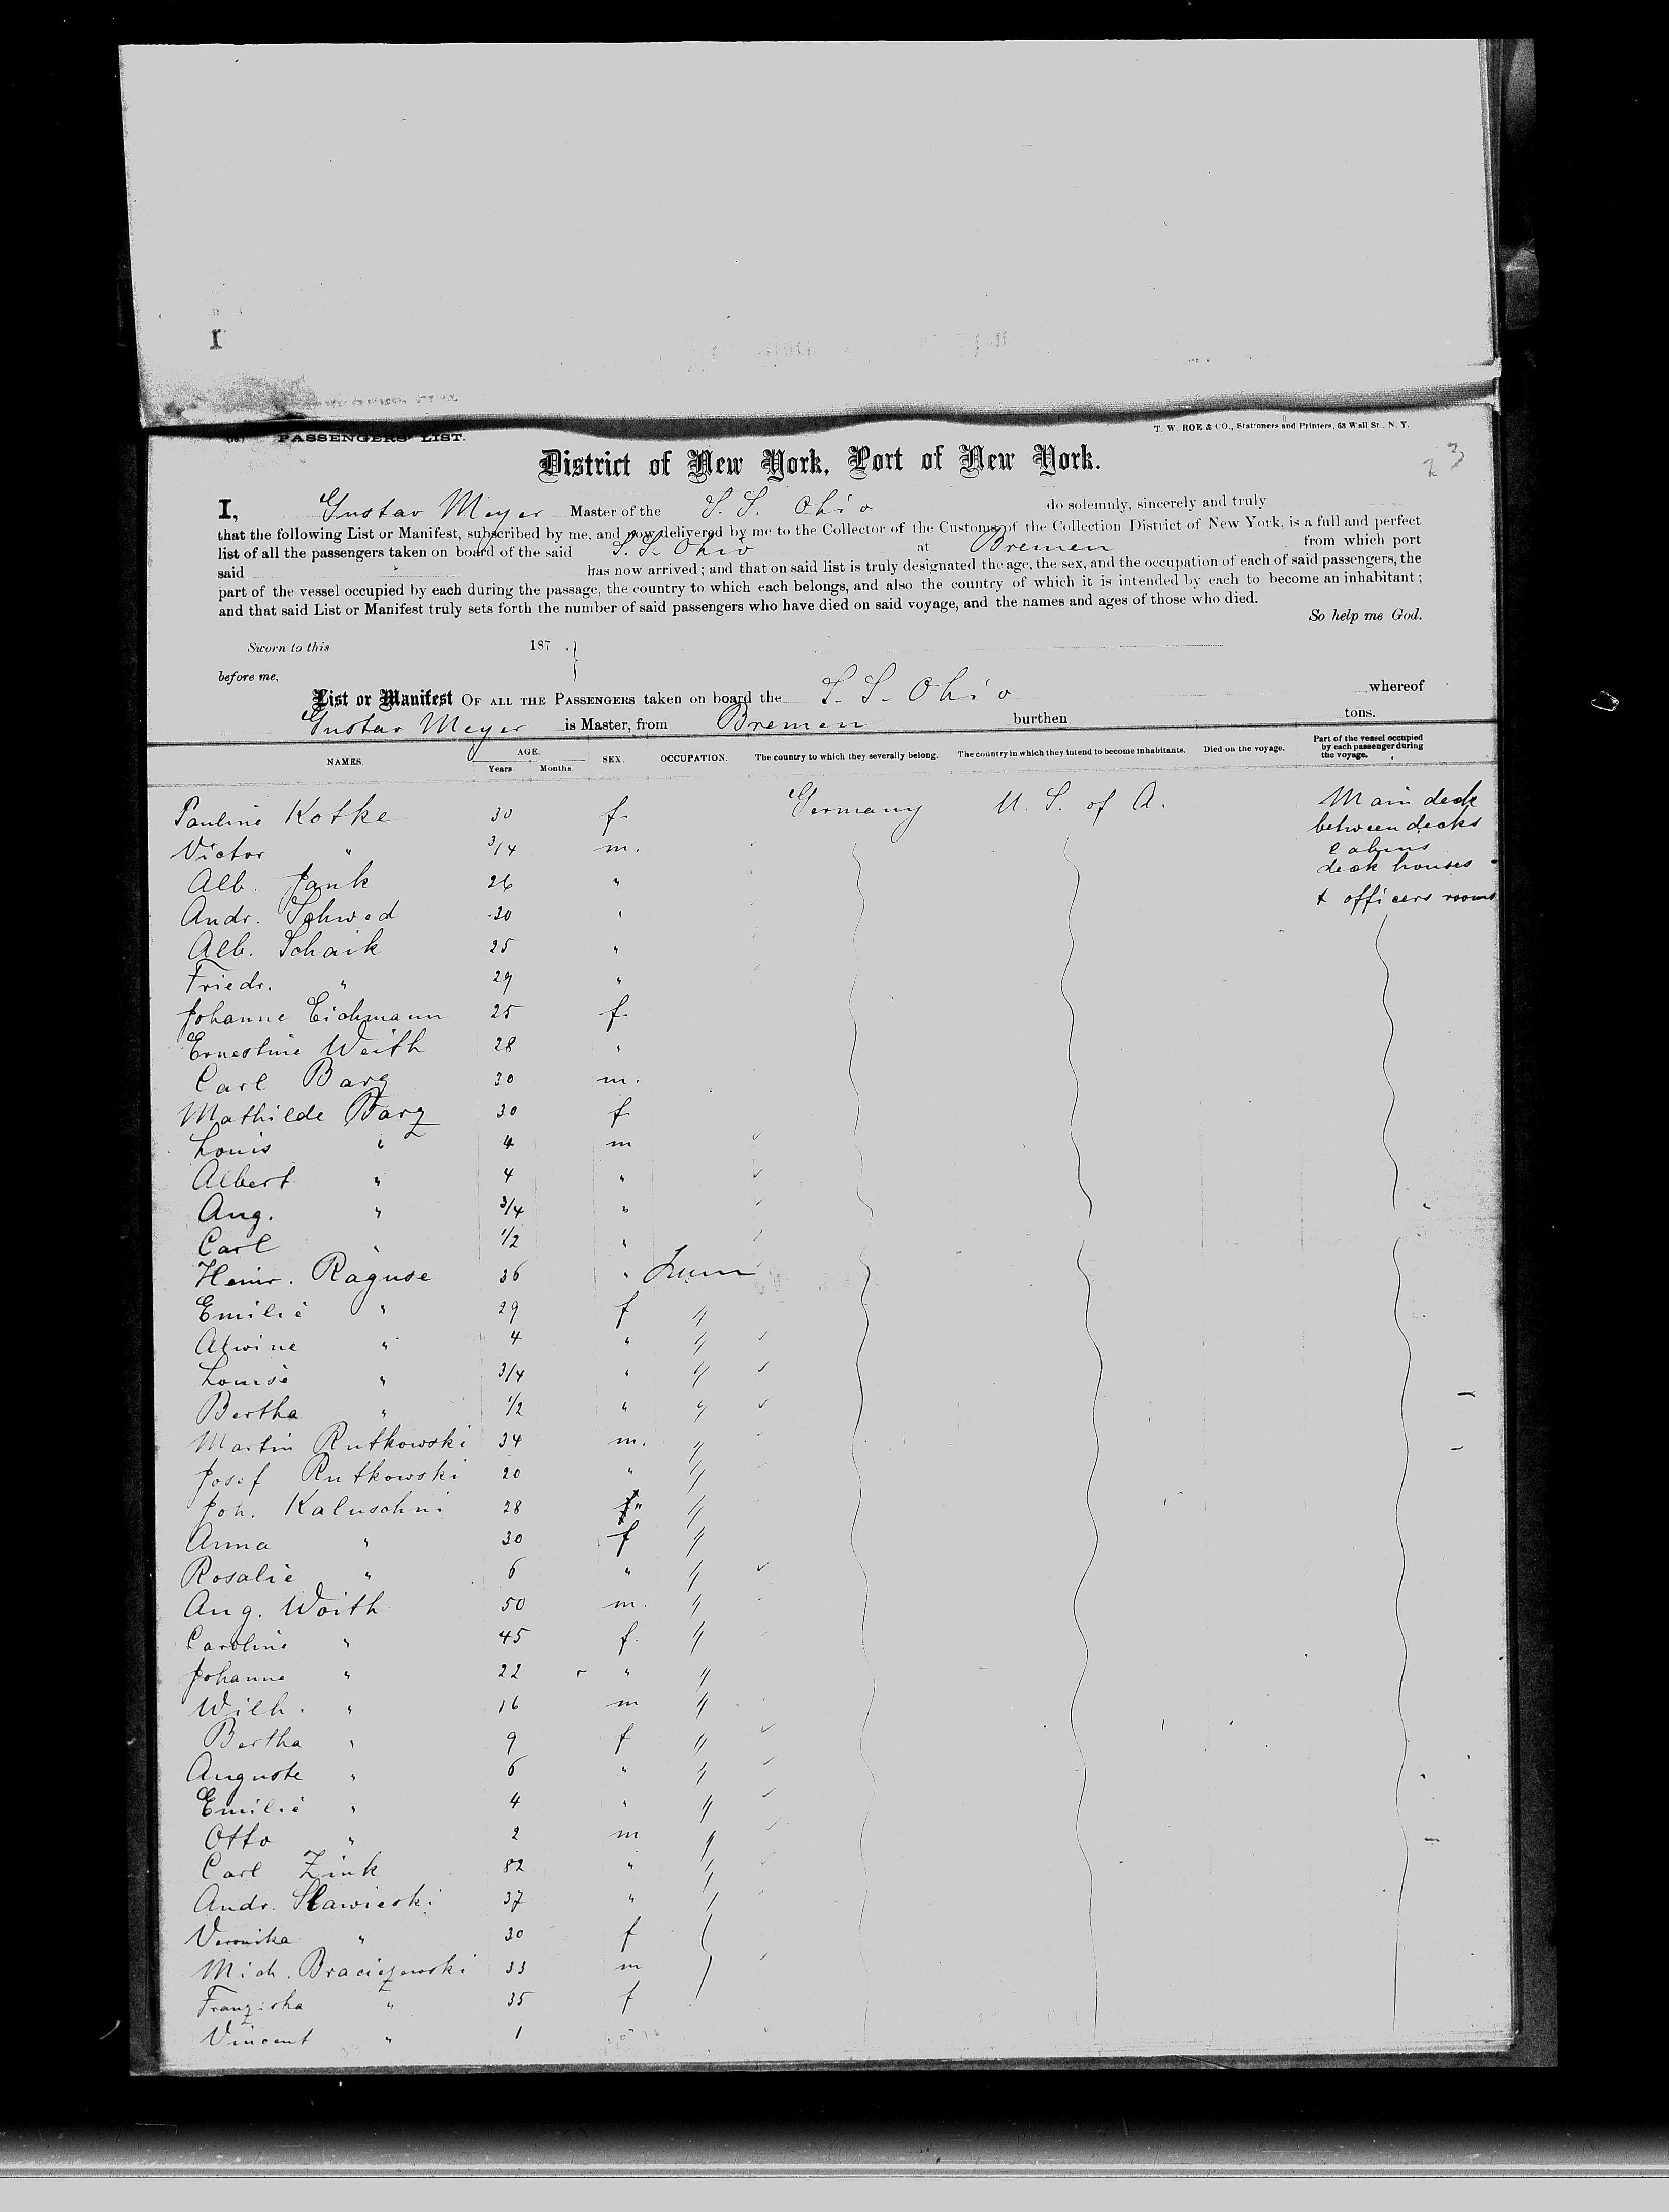 I
PASSENGERS' LIST.
T. W. ROE & CO., Stationers and Printers, 63 Wall St., N. Y.
23
District of New York, Port of New York.
I, Gustav Meyer Master of the S. S. Ohio do solemnly, sincerely and truly
that the following List or Manifest, subscribed by me, and now delivered by me to the Collector of the Customs of the Collection District of New York, is a full and perfect
list of all the passengers taken on board of the said S. S. Ohio at Bremen from which port
said has now arrived; and that on said list is truly designated the age, the sex, and the occupation of each of said passengers, the
part of the vessel occupied by each during the passage, the country to which each belongs, and also the country of which it is intended by each to become an inhabitant;
and that said List or Manifest truly sets forth the number of said passengers who have died on said voyage, and the names and ages of those who died.
So help me God.
Sworn to this 187 . }
before me,
List or Manifest OF ALL THE PASSENGERS taken on board the S. S. Ohio whereof
Gustav Meyer is Master, from Bremen burthen tons.
NAMES. AGE. Years. Months SEX. OCCUPATION. The country to which they severally belong. The country in which they intend to become inhabitants. Died on the voyage. Part of the vessel occupied by each passenger during the voyage.
Pauline Kotke 30 f. Germany U. S. of A. Main deck
between decks
Victor " 3/4 m. cabins
deck houses
Alb. Jank 26 " & officers rooms
Andr. Schwed 30 "
Alb. Schaik 25 "
Friedr. " 29 "
Johanne Eichmann 25 f.
Ernestine Weith 28 "
Carl Barz 30 m.
Mathilde Barz 30 f.
Louis " 4 m
Albert " 4 "
Aug. " 3/4 "
Carl " 1/2 "
Heinr. Raguse 36 "
Emilie " 29 f "
Alwine " 4 " "
Louise " 3/4 " "
Bertha " 1/2 " "
Martin Rutkowski 34 m. "
Josef Rutkowski 20 " "
Joh. Kaluschni 28 " "
Anna " 30 f "
Rosalie " 6 " "
Aug. Woith 50 m. "
Caroline " 45 f. "
Johanne " 22 " "
Wilh. " 16 m "
Bertha " 9 f "
Auguste " 6 " "
Emilie " 4 " "
Otto " 2 m "
Carl Zink 82 " "
Andr. Slawieski 37 " "
Veronika " 30 f
Mich. Braciezewski 33 m
Franziska " 35 f
Vincent " 1